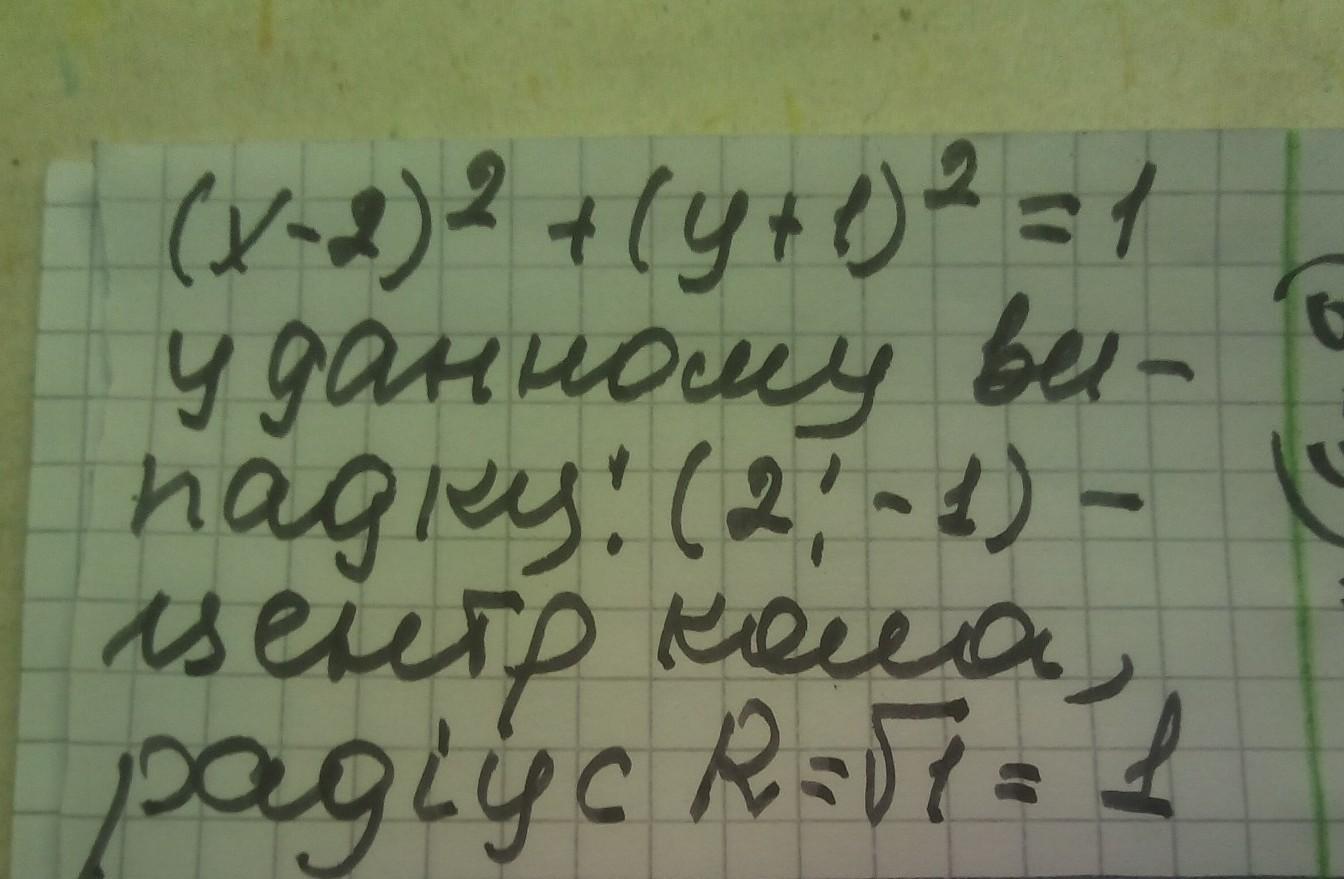 (x-2)² + (y+1)² = 1
у данному ви-
падку: (2; -1) -
центр кола,
радіус R = √1 = 1